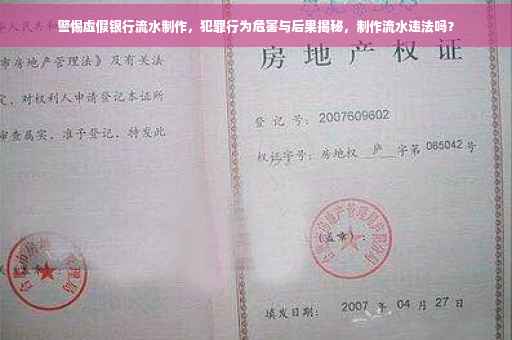 警惕虚假银行流水制作，犯罪行为危害与后果揭秘，制作流水违法吗？
华人民共和国
市房地产管理法》及有关法
定，对权利人申请登记本证所
审查属实，准予登记，特发此
房地产权证
登记号：2007609602
权证字号：房地权 庐 字第 065042 号
(盖章)：
填发日期：2007 年 04 月 27 日